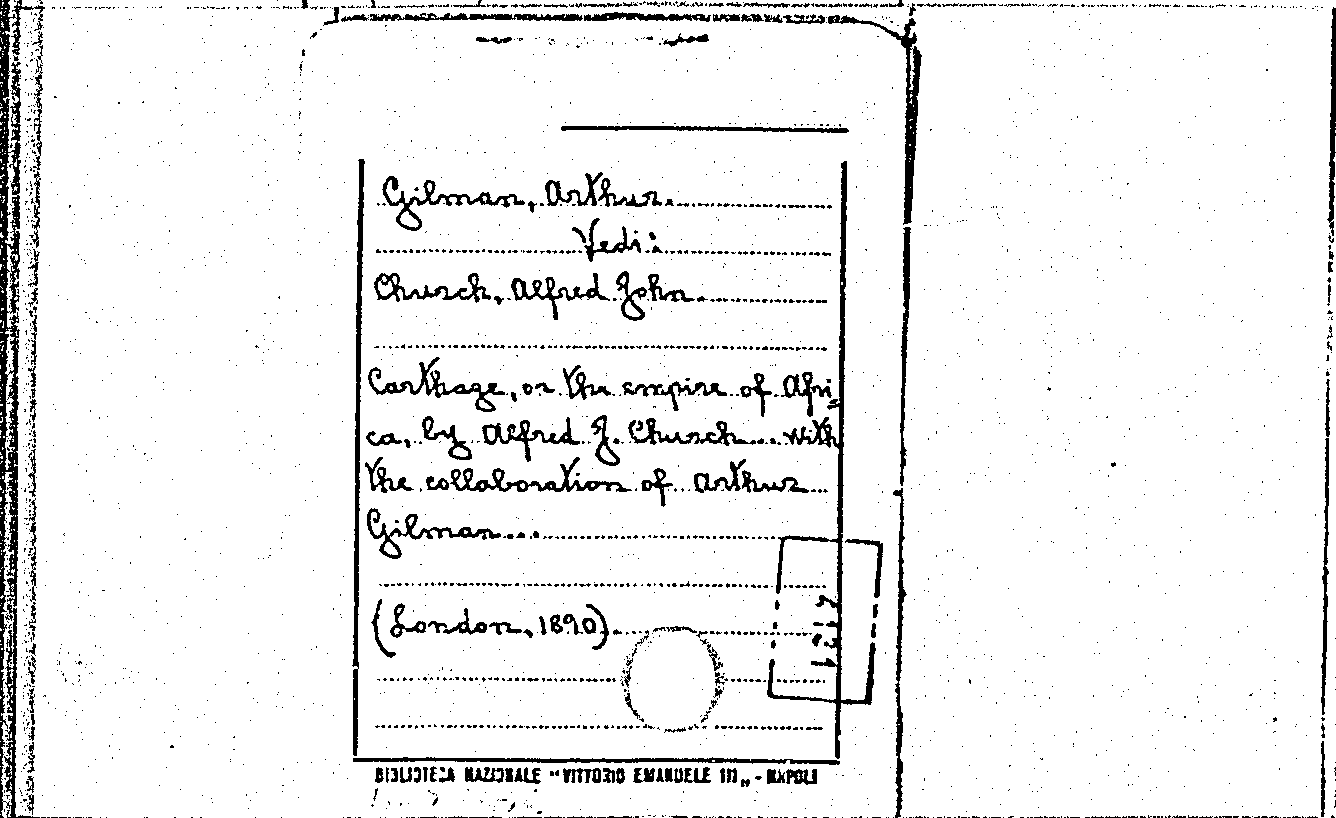 Gilman, Arthur.
Vedi:
Church, Alfred John.
Carthage, or the empire of Afri„
ca, by Alfred J. Church... with
the collaboration of Arthur
Gilman...
(London, 1890).
BIBLIOTECA NAZIONALE "VITTORIO EMANUELE III„ - NAPOLI